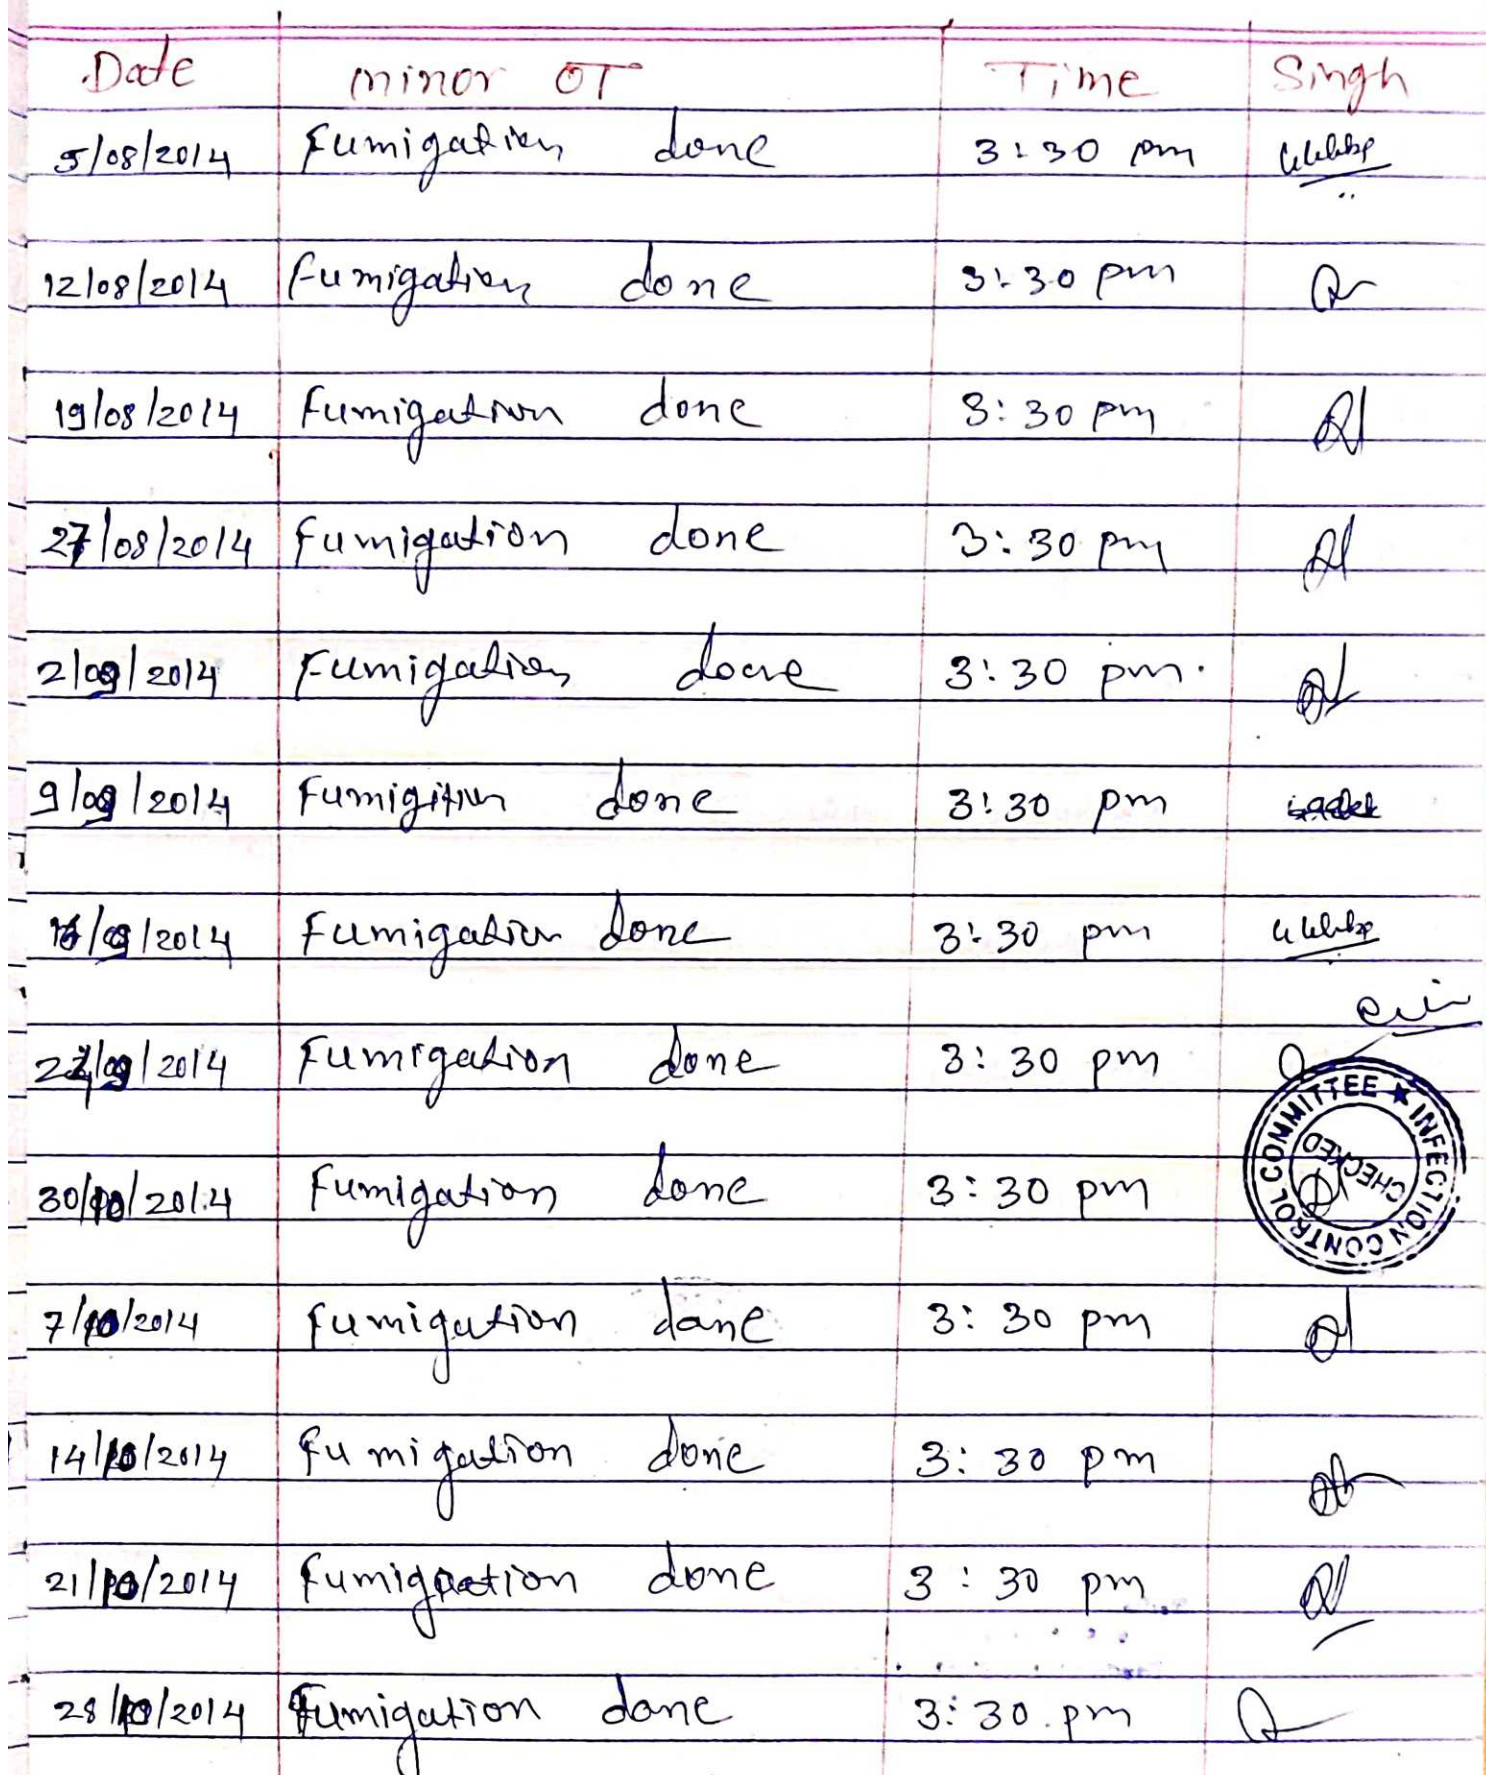 Date minor OT Time Singh
5/08/2014 Fumigation done 3:30 pm
12/08/2014 Fumigation done 3:30 pm
19/08/2014 Fumigation done 3:30 pm
27/08/2014 Fumigation done 3:30 pm
2/09/2014 Fumigation done 3:30 pm.
9/09/2014 Fumigition done 3:30 pm
/09/2014 Fumigation done 3:30 pm
/09/2014 Fumigation done 3:30 pm
INFECTION CONTROL COMMITTEE
CHECKED
30/10/2014 Fumigation done 3:30 pm
7/10/2014 Fumigation done 3:30 pm
14/10/2014 Fumigation done 3:30 pm
21/10/2014 Fumigation done 3:30 pm
28/10/2014 Fumigation done 3:30 pm